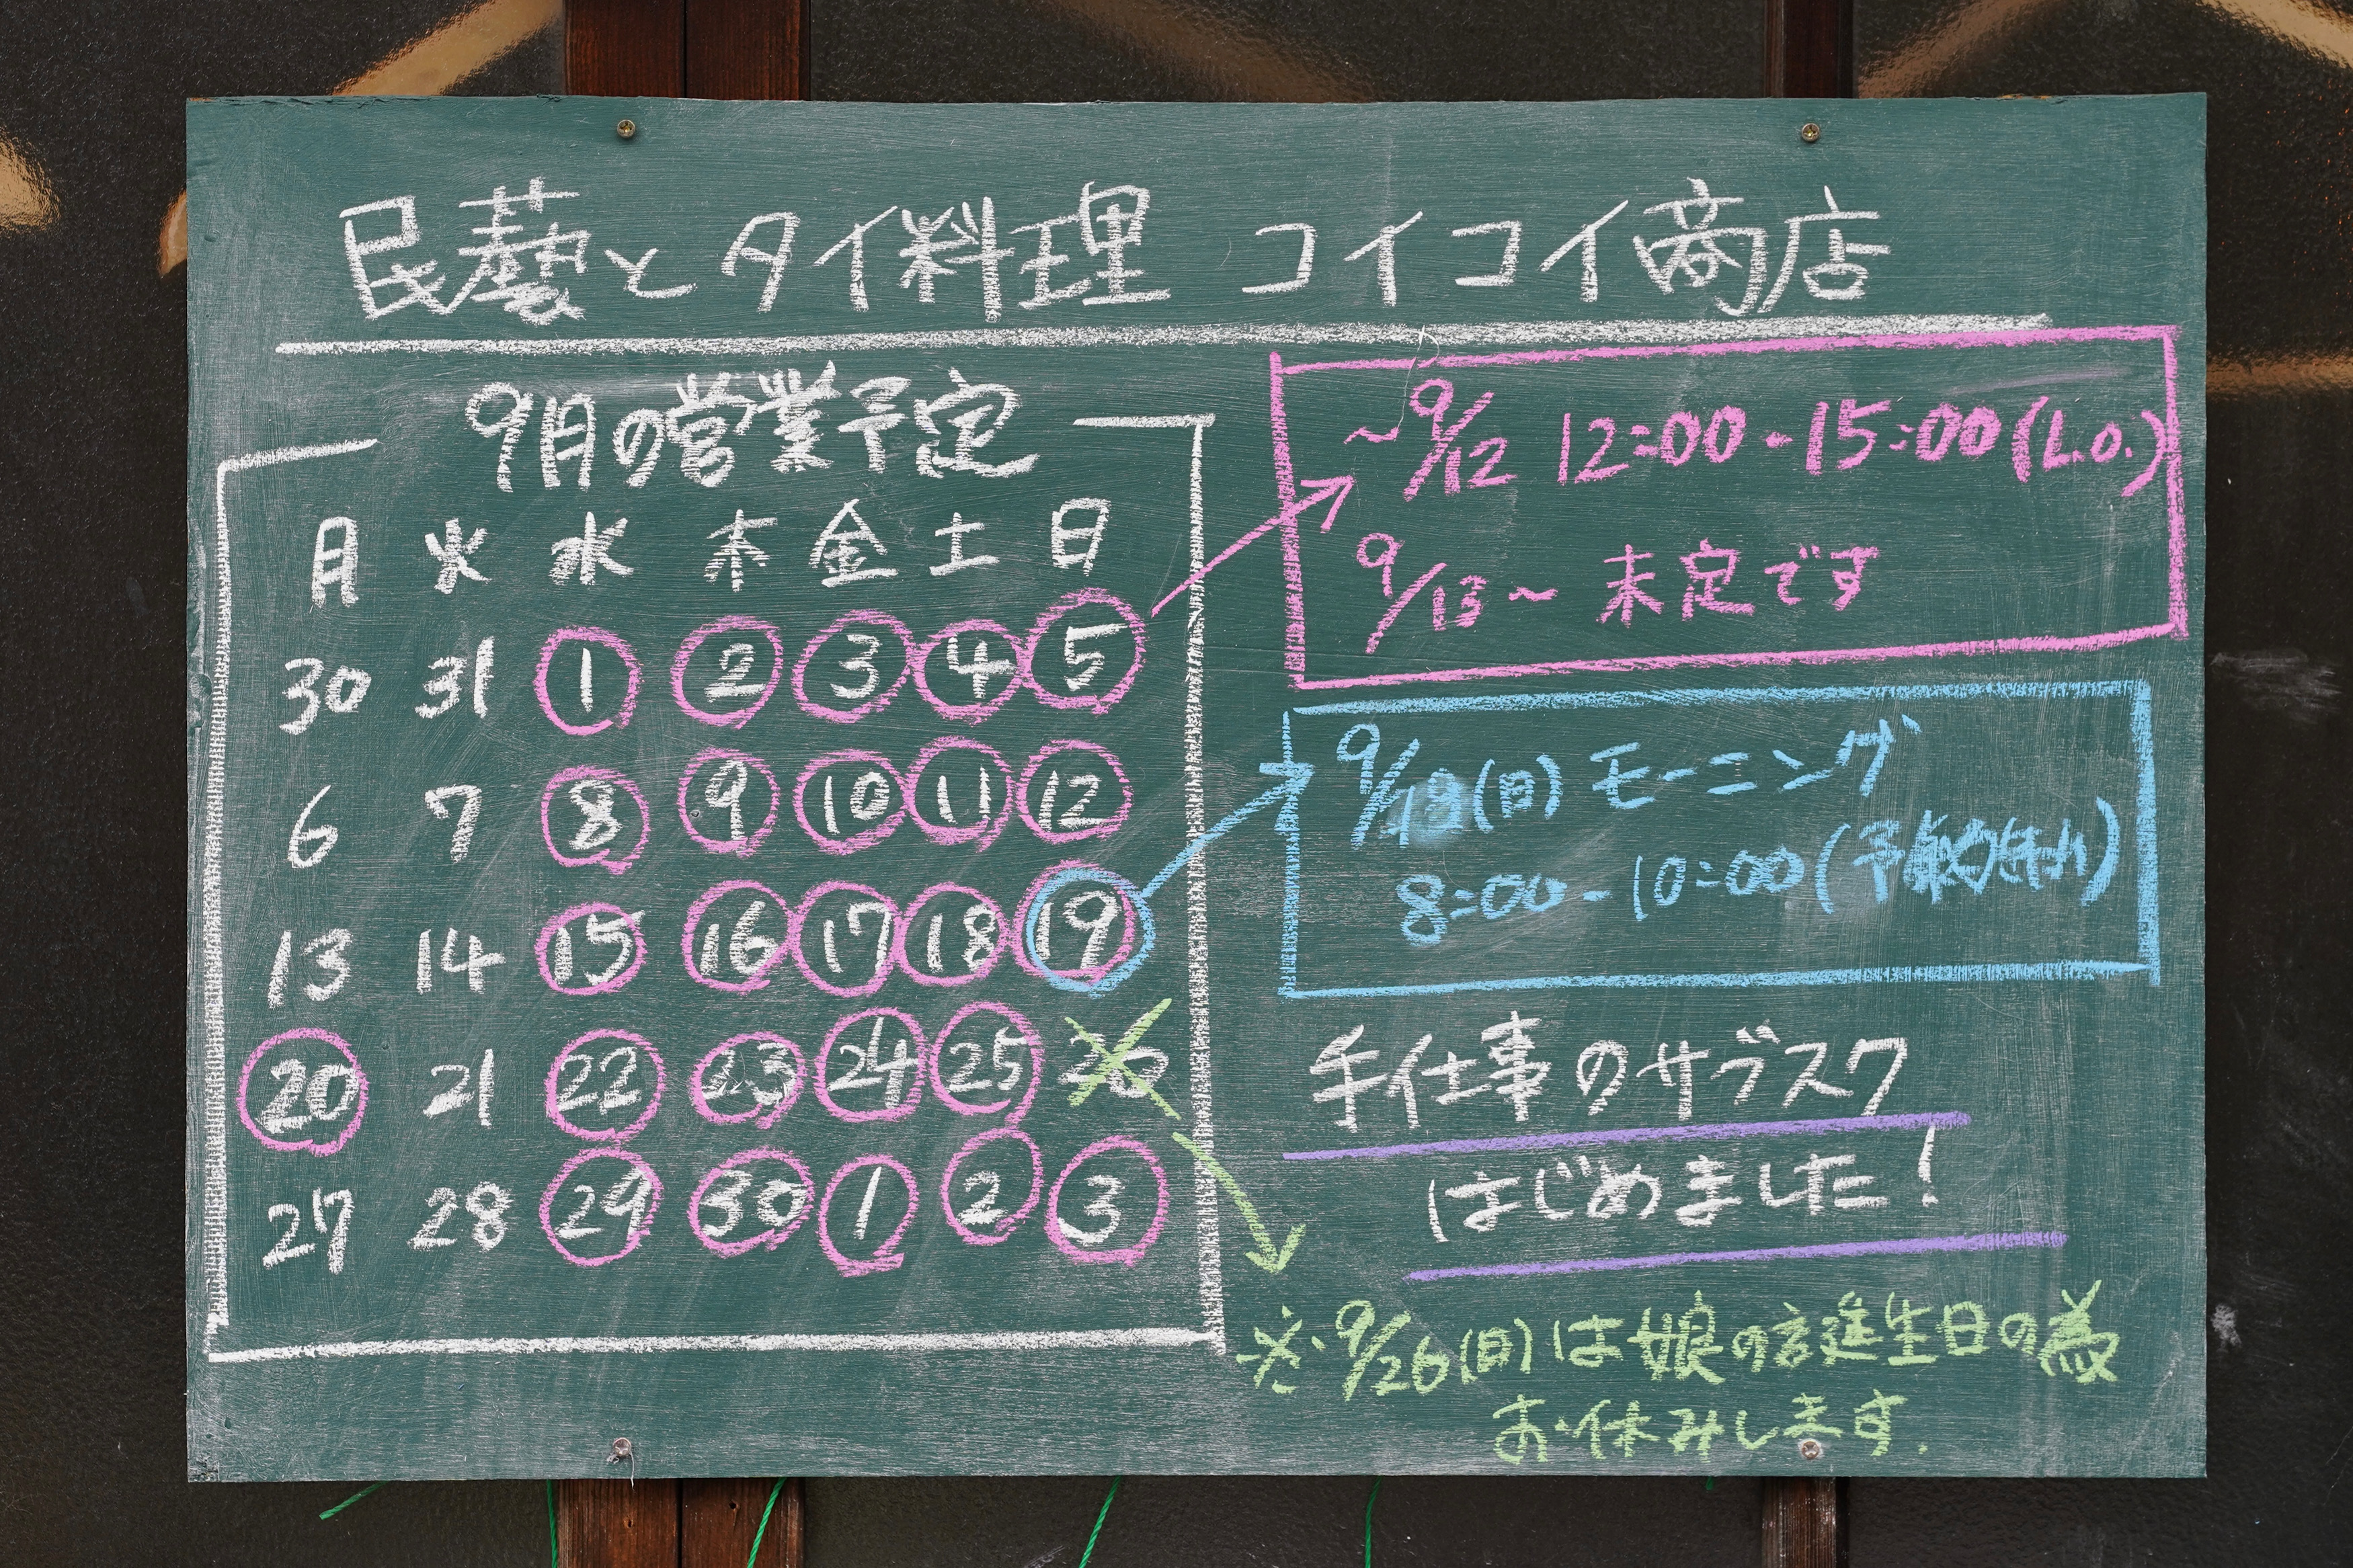 民藝とタイ料理 コイコイ商店
9月の営業予定
月 火 水 木 金 土 日
30 31 1 2 3 4 5
6 7 8 9 10 11 12
13 14 15 16 17 18 19
20 21 22 23 24 25 26
27 28 29 30 1 2 3
~9/12 12:00-15:00(L.O.)
9/13~ 未定です
9/19(日)モーニング
8:00-10:00(予約制)
手仕事のサブスク
はじめました!
※9/26(日)は娘の誕生日の為
お休みします.